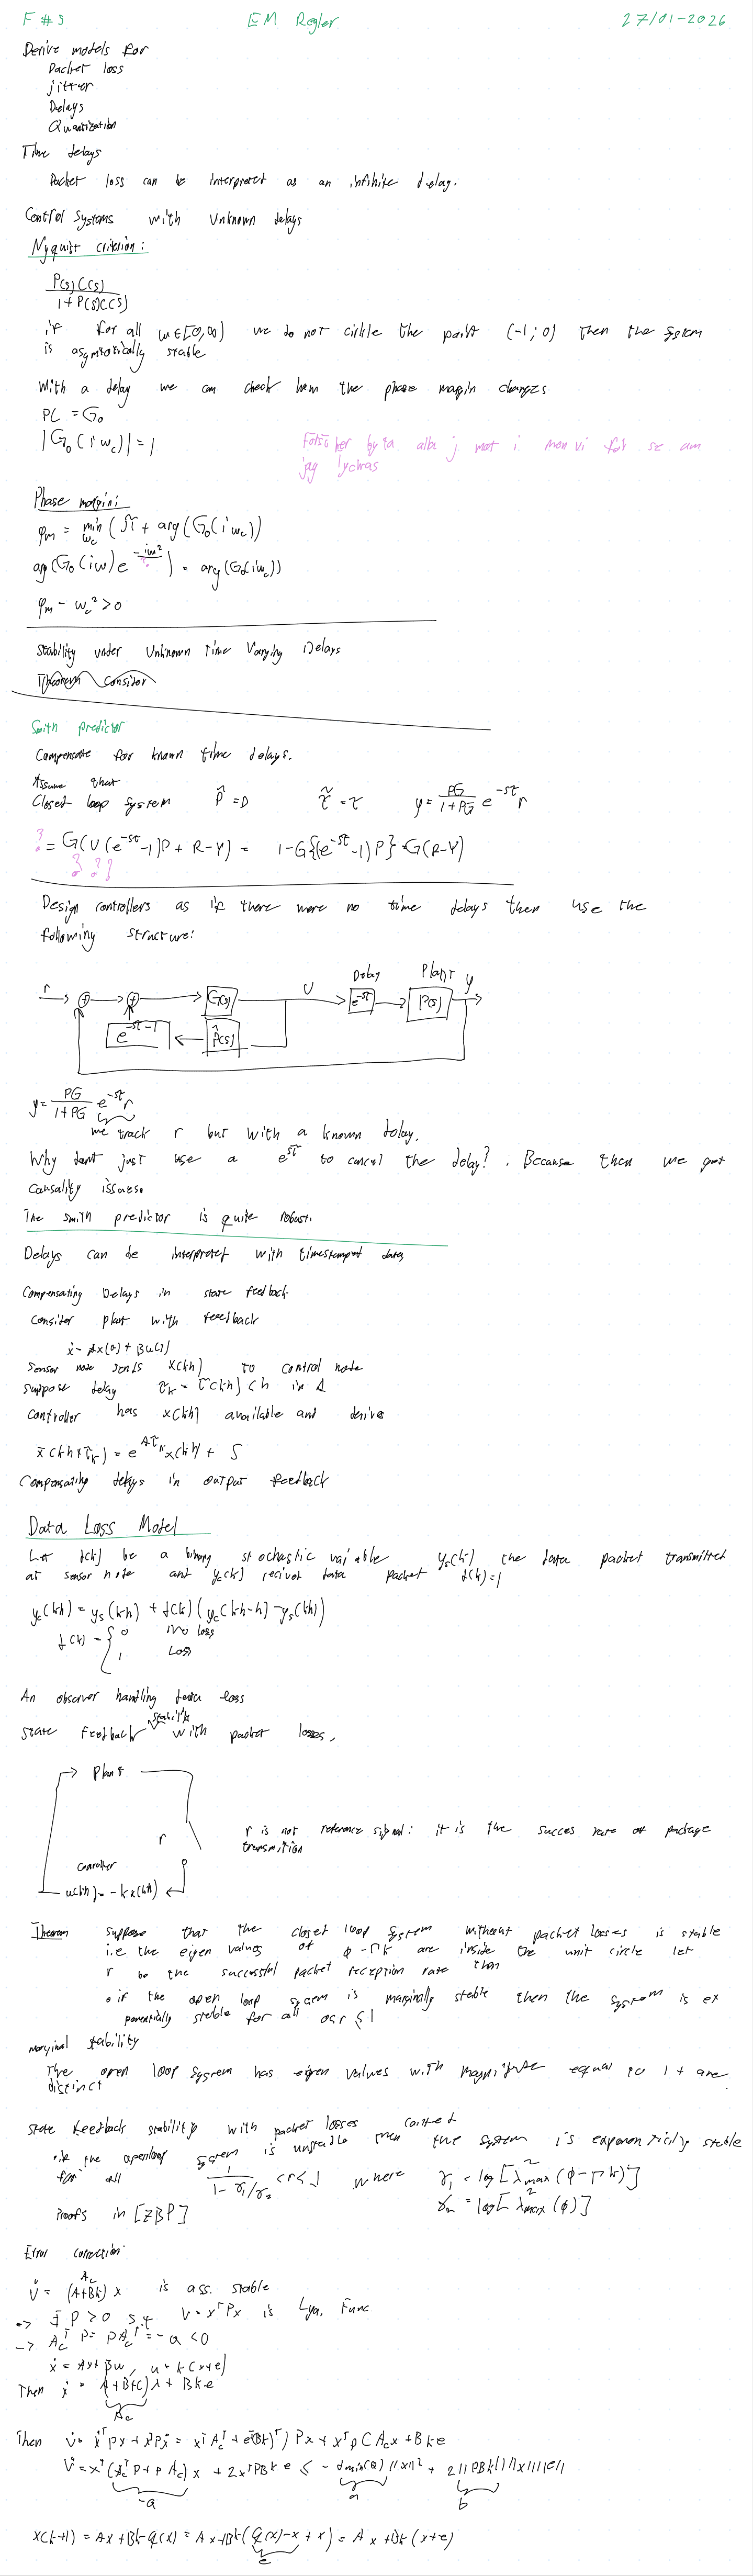 F #3 EM Regler 27/01-2026
Derive models for
Packet loss
jitter
Delays
Quantization
Time delays
Packet loss can be interpret as an infinite delay.
Control Systems with Unknown delays
Nyquist criterion:
P(s)C(s)
1+P(s)C(s)
if for all ω∈[0,∞) we do not cirkle the point (-1;0) then the system
is asymtotically stable
With a delay we can check how the phase margin changes
PC = G₀
|G₀(iω_c)|=1
byta alla j mot i men vi får se om
jag lyckas
Phase margin:
φ_m = min_{ω_c} (π + arg(G₀(iω_c))
arg(G₀(iω)e^{-iω²}) = arg(G₀(iω_c))
φ_m - ω_c² > 0
Stability under Unknown Time Varying Delays
Theorem Consider
Smith predictor
Compensate for known time delays.
Assume that
Closed loop system P̂ = D τ̃ = τ y = PG/(1+PG) e^{-sτ} r
? = G(U(e^{-sτ}-1)P + R-Y) = 1-G{(e^{-sτ}-1)P}·G(R-Y)
? ? ?
Design controllers as if there were no time delays then use the
following structure:
Delay Plant
r G(s) U e^{-sτ} P(s) y
e^{-sτ}-1 P̂(s)
y = PG/(1+PG) e^{-sτ} r
we track r but with a known delay.
Why dont just use a e^{sτ} to cancel the delay? : Because then we get
causality issues.
The smith predictor is quite robust.
Delays can be interpret with timestampt data
Compensating Delays in state feedback
Consider plant with feedback
Sensor node sends x(kh) to control node
suppose delay τ_k = τ(kh) < h
Controller has x(kh) available and
x̄(kh+τ_k) = e^{Aτ_k} x(kh) + ∫
Compensating delays in output feedback
Data Loss Model
Let d(k) be a binary stochastic variable y_s(k) the data packet transmitted
at sensor node and y_c(k) recivet data packet d(k)=1
y_c(kh) = y_s(kh) + d(k)(y_c(kh-h) - y_s(kh))
d(k) = { 0 No loss
1 Loss
An observer handling data loss
state feedback stability with packet losses.
Plant
r
r is not reference signal: it is the succes rate of package
transmition
Controller
u(kh) = -kx(kh)
Theorem suppose that the closet loop system without packet losses is stable
i.e the eigen values of φ-Γk are inside the unit circle let
r be the successful packet reception rate then
• if the open loop system is marginally stable then the system is ex
ponentially stable for all 0<r≤1
marginal stability
The open loop system has eigen values with magnitude equal to 1 + are
distinct
State feedback stability with packet losses conted
• if the openloop system is unstable then the system is exponentically stable
for all 1/(1-γ₁/γ₂) < r < 1 where γ₁ = log[λ²max(φ-Γk)]
γ₂ = log[λ²max(φ)]
Proofs in [ZBP]
Error correction
A_c
V̇ = (A+Bk)x is ass. stable
-> ∃ P>0 s.t V = xᵀPx is Lya. Func.
-> A_cᵀ P = P A_cᵀ = -Q < 0
ẋ = Ax+Bu, u = k(x+e)
Then ẋ = (A+Bk)x + Bke
A_c
Then V̇ = ẋᵀPx + xᵀPẋ = xᵀA_cᵀ + eᵀ(Bk)ᵀ)Px + xᵀP(A_cx + Bke
V̇ = xᵀ(A_cᵀP + PA_c)x + 2xᵀPBke ≤ -λmin(Q)||x||² + 2||PBk||||x||||e||
-Q a b
x(k+1) = Ax+Bk q(x) = Ax+Bk(q(x)-x+x) = Ax+Bk(x+e)
e